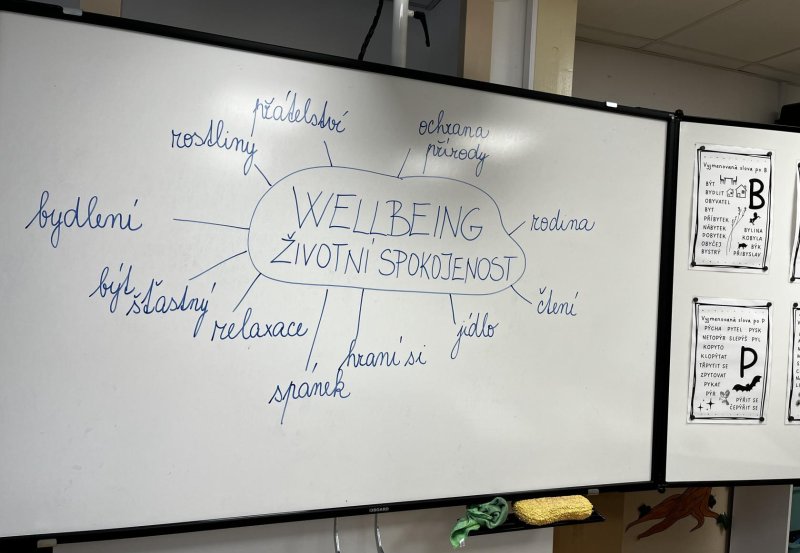 přátelství
ochrana
přírody
rostliny
WELLBEING
ŽIVOTNÍ SPOKOJENOST
rodina
bydlení
být
šťastný
relaxace
spánek
hraní si
jídlo
čtení
Vyjmenovaná slova po B
B
BÝT
BYDLIT
OBYVATEL
BYT
PŘÍBYTEK
NÁBYTEK
DOBYTEK
OBYČEJ
BYSTRÝ
BYLINA
KOBYLA
BÝK
PŘIBYSLAV
Vyjmenovaná slova po P
P
PÝCHA PYTEL PYSK
NETOPÝR SLEPÝŠ PYL
KOPYTO
KLOPÝTAT
TŘPYTIT SE
ZPYTOVAT
PYKAT
PÝR
PÝŘIT SE
ČEPÝŘIT SE